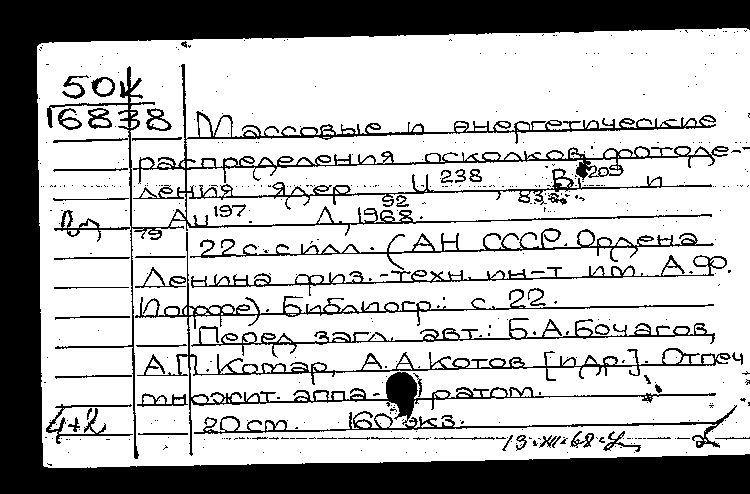 50к
16838
Массовые и энергетические
распределения осколков фотоде-
ления ядер U 238 , Bi 209 и
92 83
Au 197. Л., 1968.
79
22 с. с илл. (АН СССР. Ордена
Ленина физ.-техн. ин-т им. А.Ф.
Иоффе). Библиогр.: с. 22.
Перед загл. авт.: Б.А.Бочагов,
А.П.Комар, А.А.Котов [и др.]. Отпеч
множит. аппа- ратом.
4+2 20 см. 160 экз.